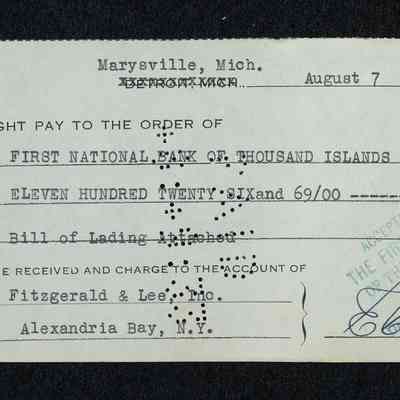 Marysville, Mich.
DETROIT, MICH. August 7
GHT PAY TO THE ORDER OF
FIRST NATIONAL BANK OF THOUSAND ISLANDS
ELEVEN HUNDRED TWENTY SIXand 69/00 ------
Bill of Lading Attached
E RECEIVED AND CHARGE TO THE ACCOUNT OF
Fitzgerald & Lee, Inc.
Alexandria Bay, N.Y.
ACCEPTE
THE FIR
OF TH